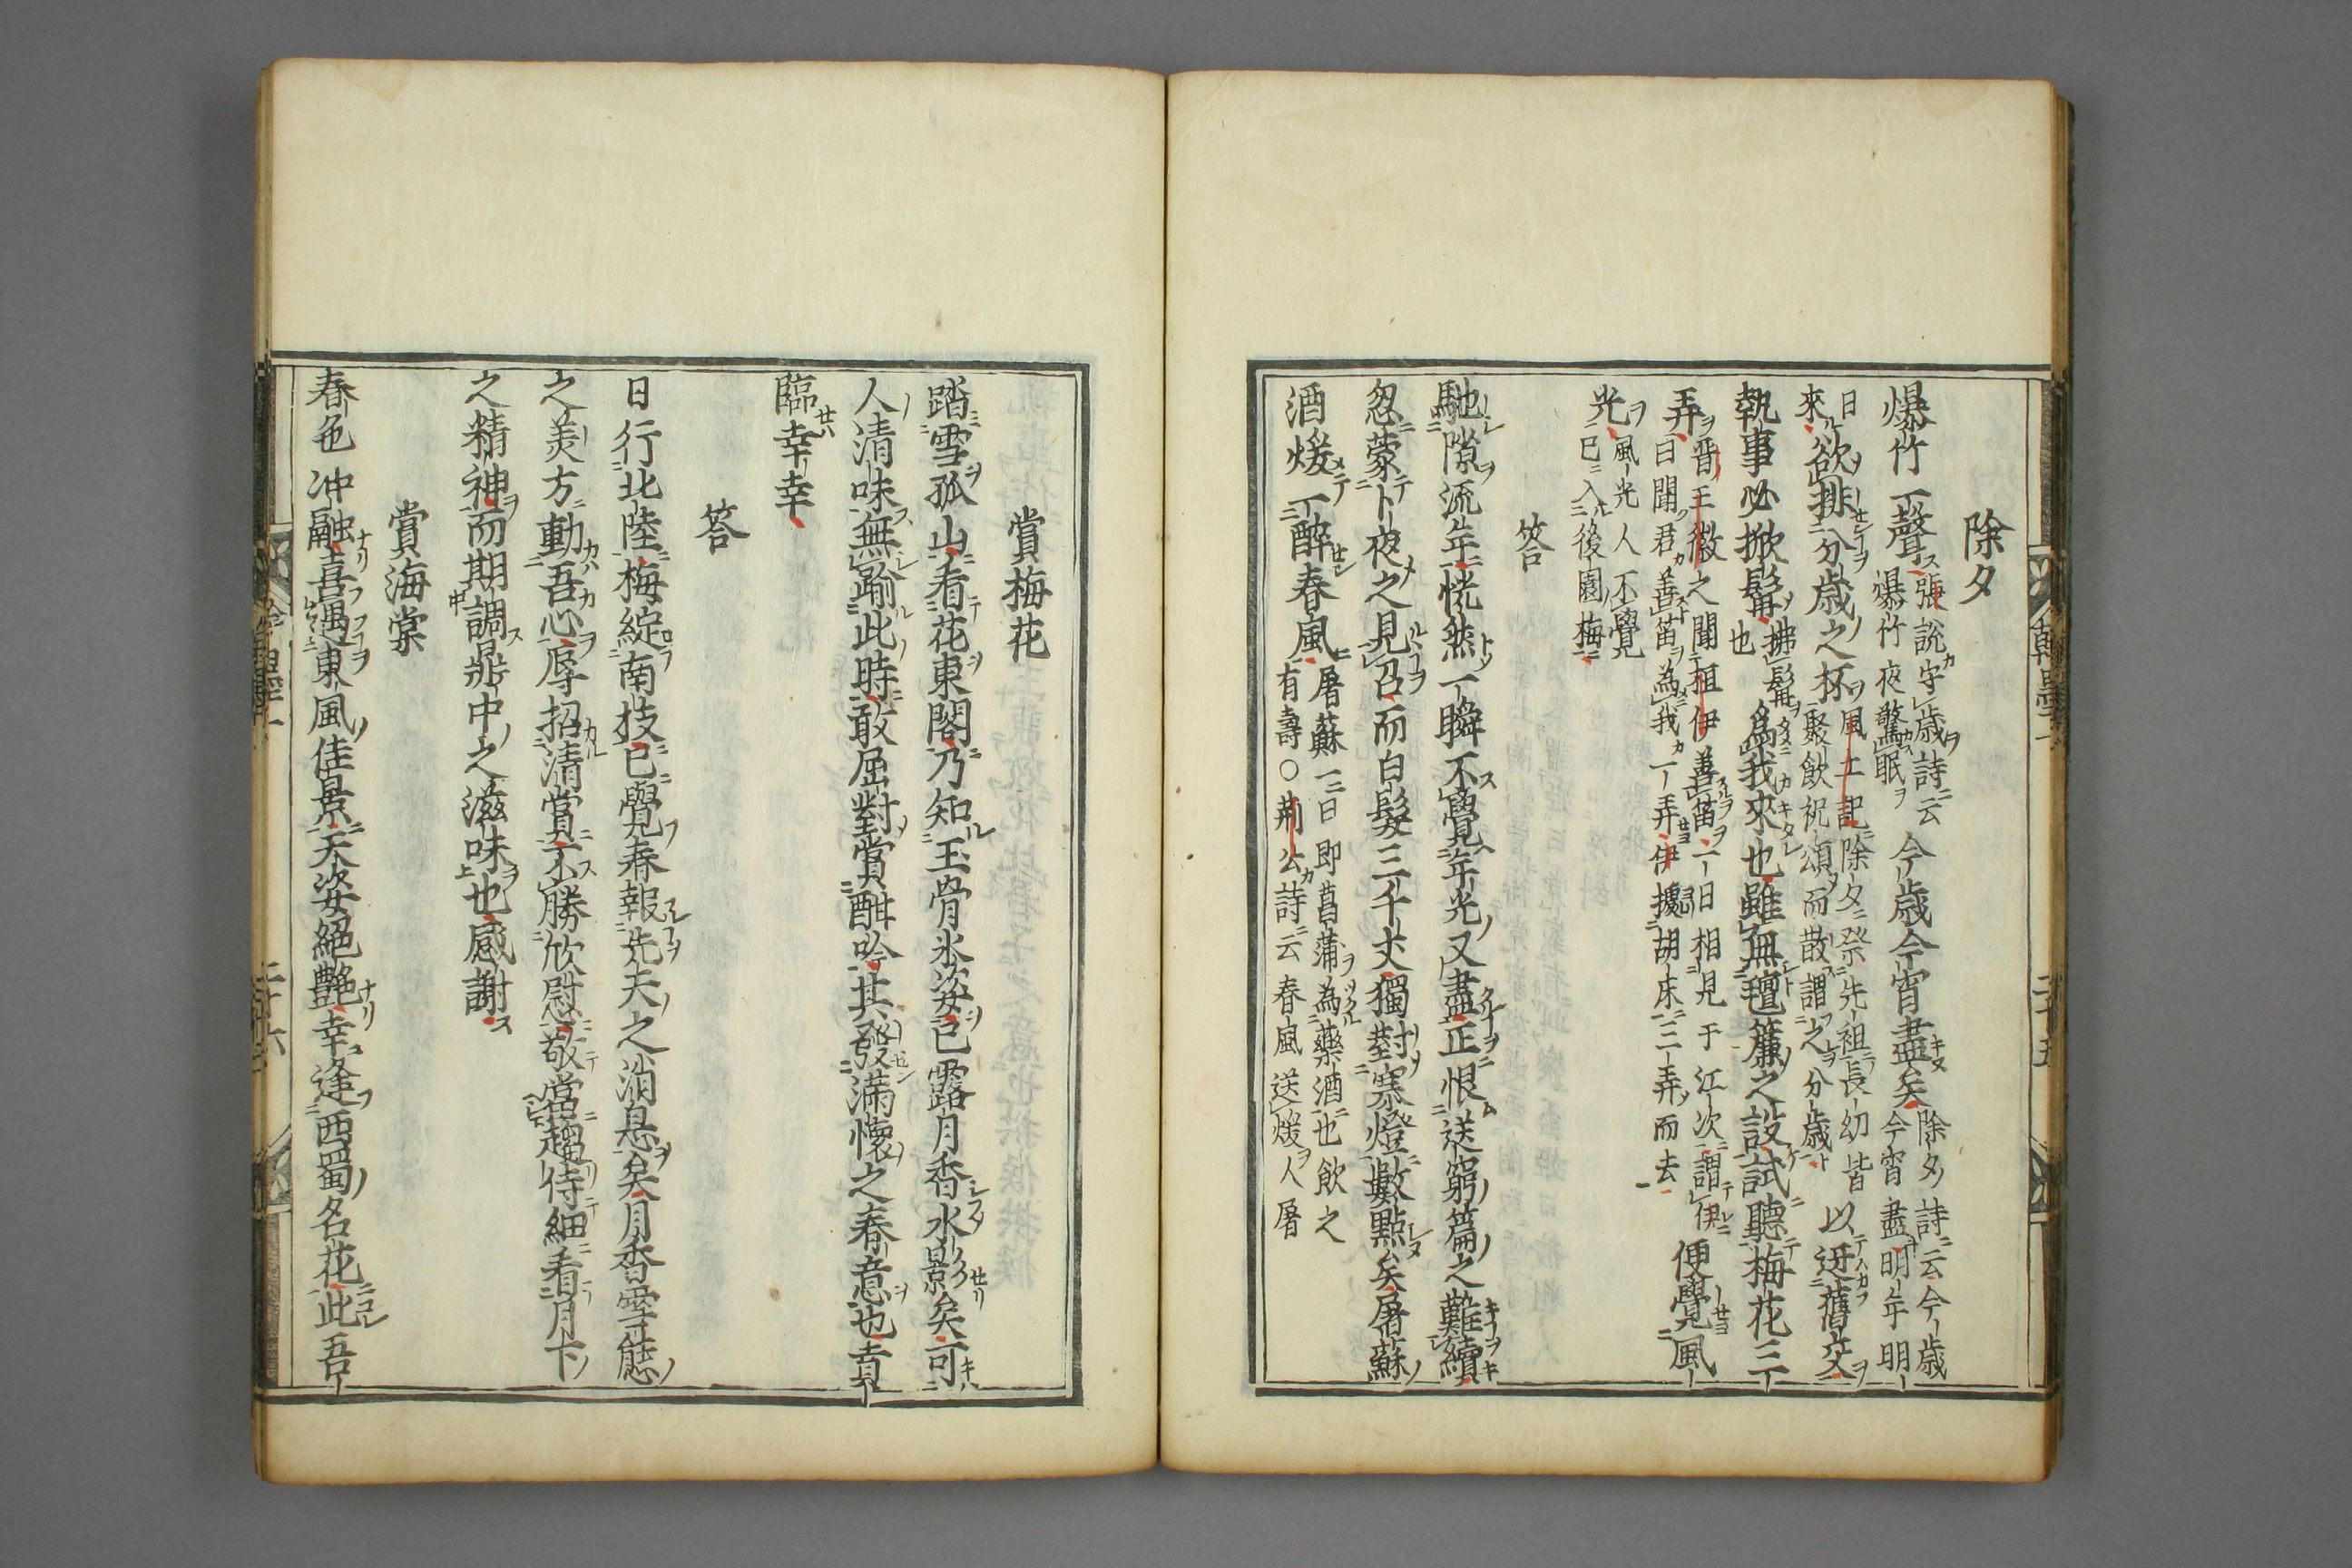 除夕
爆竹一聲張說守歲詩云爆竹夜驚眠今歲今宵盡矣除夕詩云今歲今宵盡明年明
日來欲排分歲之杯風土記除夕祭先祖長幼皆聚飲祝頌而散謂之分歲以迓舊交
執事必掀髯掀髯也為我來也雖無氊簾之設試聽梅花三
弄晉王徽之聞桓伊善笛一日相見于江次謂伊曰聞君善笛為我一弄伊據胡床三弄而去便覺風
光風光人不覺已入後園梅
答
馳隙流年恍然一瞬不覺年光又盡正恨送窮篇之難續
忽蒙卜夜之見召而白髮三千丈獨對寒燈數點矣屠蘇
酒煖一醉春風屠蘇三日即菖蒲為藥酒也飲之有壽○荊公詩云春風送煖人屠
賞梅花
踏雪孤山看花東閣乃知玉骨氷姿已露月香水影矣可
人清味無踰此時敢屈對賞酣吟其發滿懷之春意也賁
臨幸幸
答
日行北陸梅綻南枝已覺春報先天之消息矣月香雪態
之美方動吾心辱招清賞不勝欣慰敬當趨侍細看月下
之精神而期調鼎中之滋味也感謝
賞海棠
春色冲融喜遇東風佳景天姿絕艷幸逢西蜀名花此吾